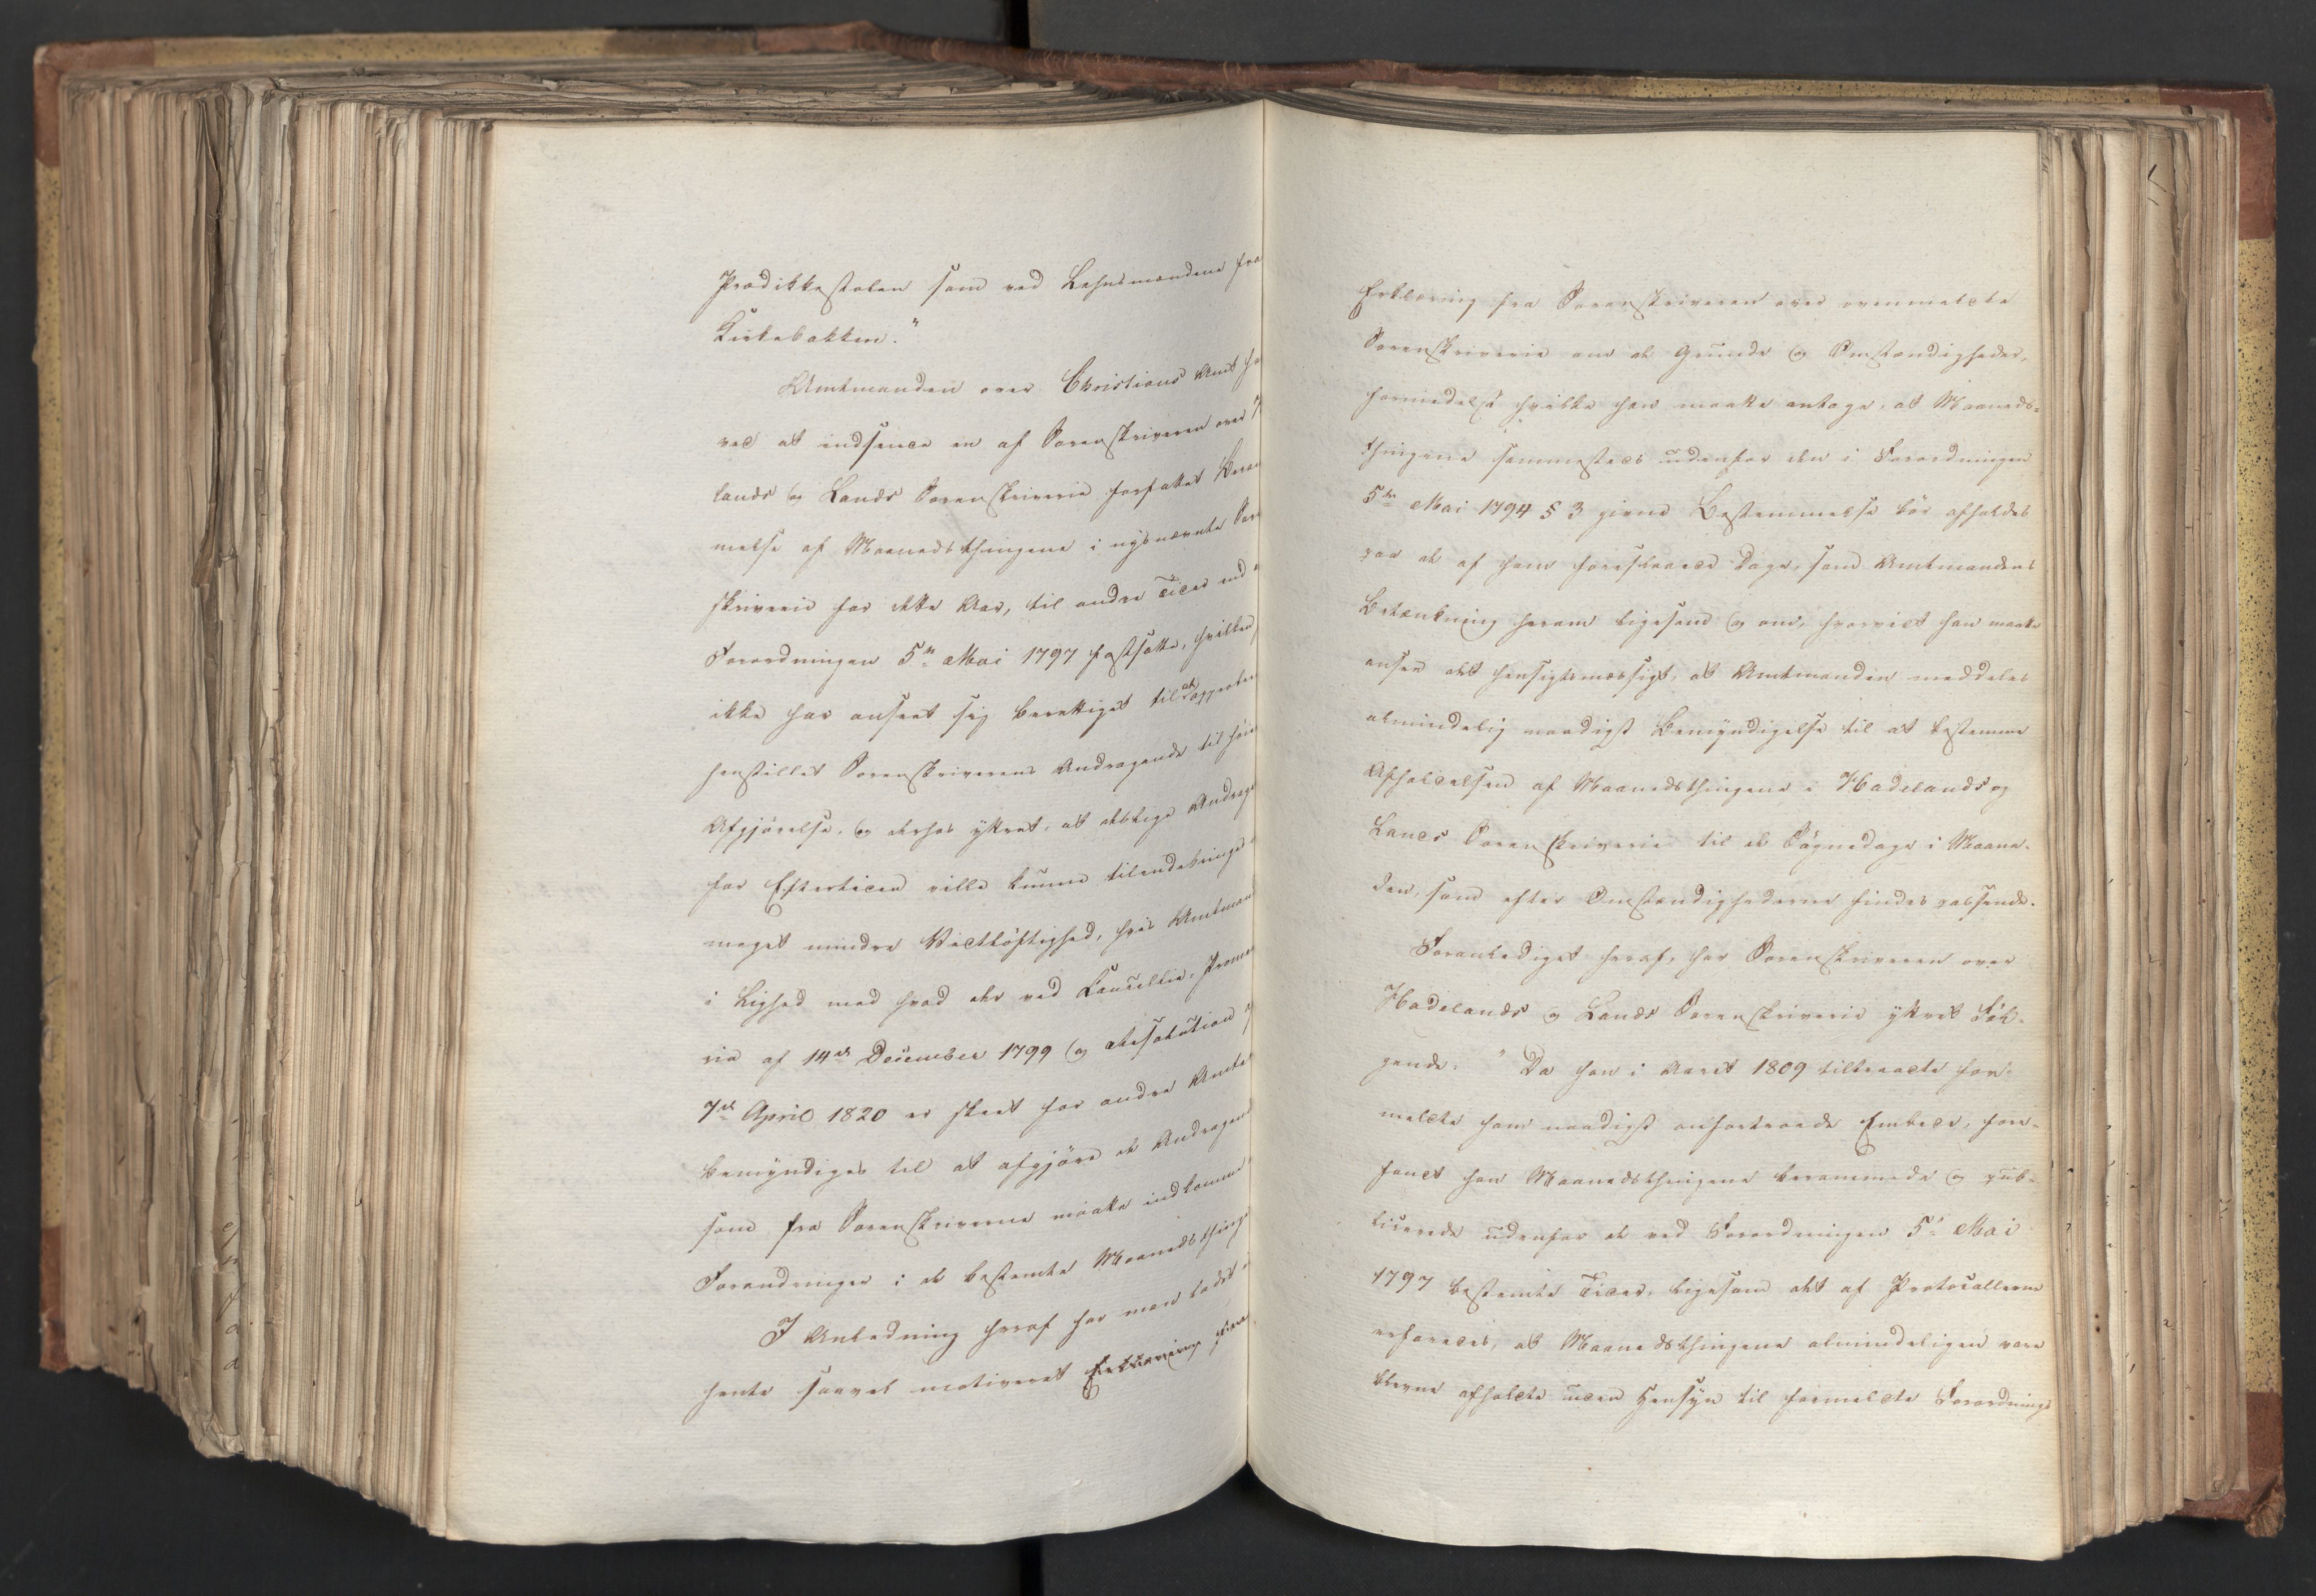 Prædikestolen som ved Lehnsmændene fra
Kirkebakken."
Amtmanden over Christians Amt ha
ved at indsende en af Sorenskriveren over
lands og Lands Sorenskriverie forfattet Beram
melse af Maanedsthingene i nysnævnte Soren
skriverie for dette Aar, til andre Tider end
Forordningen 5te Mai 1797 fastsatte, hvilken
ikke har anseet sig berettiget til at approbere
henstillet Sorenskriverens Andragende til høiere
Afgjørelse, og derhos yttret, at deslige Andrage
for Eftertiden ville kunne tilendebringes
meget mindre Vidtløftighed, hvis Amtman
i Lighed med hvad der ved Cancellie-Prome
ria af 14de December 1799 og Resolution
7de April 1820 er skeet for andre Amter
bemyndiges til at afgjøre de Andragen
som fra Sorenskriverne maatte indkomme
Forandringer i de bestemte Maanedsthinge
I Anledning heraf har man ladet
hente saavel motiveret Erklæring
Erklæring fra Sorenskriveren over ovenmeldte
Sorenskriverie om de Grunde og Omstændigheder,
formedelst hvilke han maatte antage, at Maaneds-
thingene sammesteds udenfor den i Forordningen
5te Mai 1794 § 3 givne Bestemmelse bør afholdes
paa de af ham foreslaaede Dage, som Amtmandens
Betænkning herom ligesom og om, hvorvidt han maatte
ansee det hensigtsmæssigt, at Amtmanden meddeles
almindelig naadigst Bemyndigelse til at bestemme
Afholdelsen af Maanedsthingene i Hadelands og
Lands Sorenskriverie til de Søgnedage i Maane-
den, som efter Omstændighederne findes passende.
Foranlediget heraf, har Sorenskriveren over
Hadelands og Lands Sorenskriverie yttret Føl-
gende: "Da han i Aaret 1809 tiltraadte for-
meldte ham naadigst anfortroede Embede, fore-
fandt han Maanedsthingene berammede og pub-
licerede udenfor de ved Forordningen 5te Mai
1797 bestemte Tider, ligesom det af Protocollerne
erfaredes, at Maanedsthingene almindeligen vare
blevne afholdte uden Hensyn til formeldte Forordnings